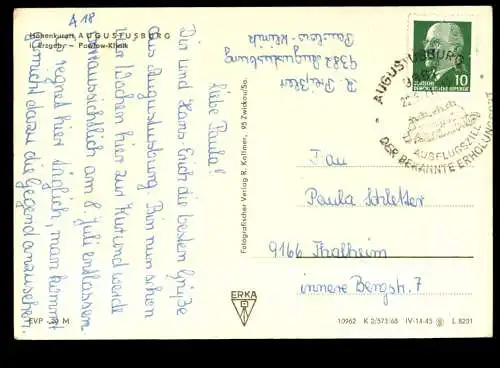 A 18
Höhenkurort AUGUSTUSBURG
i. Erzgeb. — Pawlow-Klinik
Liebe Paula!
Dir und Hans Erich die besten Grüße
aus Augustusburg. Bin nun schon
Wochen hier zur Kur und werde
voraussichtlich am 8. Juli entlassen.
Es regnet hier täglich, man kommt
garnicht dazu die Gegend anzusehen.
EVP -,20 M
Fotografischer Verlag R. Kallmer, 95 Zwickau/Sa.
ERKA
R. Preßler
9382 Augustusburg
Pawlow-Klinik
AUGUSTUSBURG
AUSFLUGSZIEL
DER BEKANNTE ERHOLUNGSORT
10
DEUTSCHE DEMOKRATISCHE REPUBLIK
Frau
Paula Schletter
9166 Thalheim
innere Bergstr. 7
10962 K 2/573/68 IV-14-45 L 8201